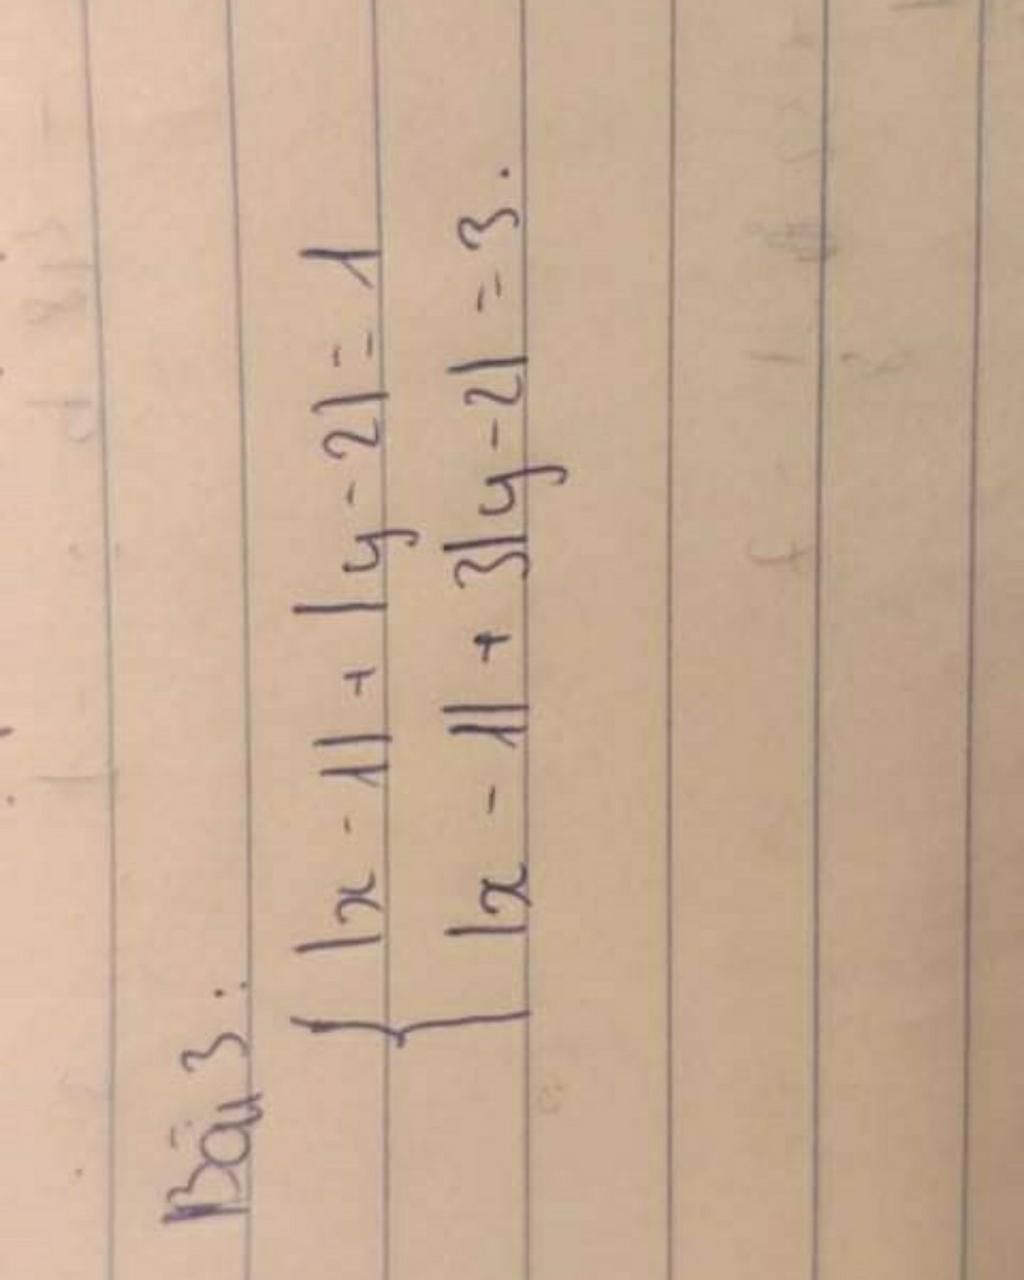 Bài 3:
{ |x - 1| + |y - 2| = 1
|x - 1| + 3|y - 2| = 3.